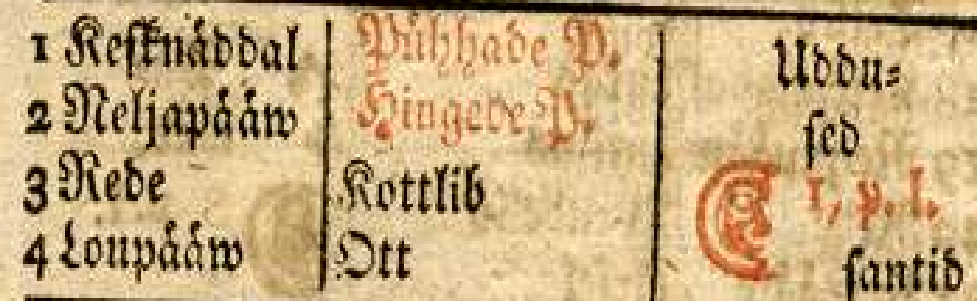 1 Keſknäddal | Pühhade P. | Uddu=
2 Neljapääw | Hingede P. | ſed
3 Rede | Kottlib | 1, p. l.
4 Loupääw | Ott | ſantid